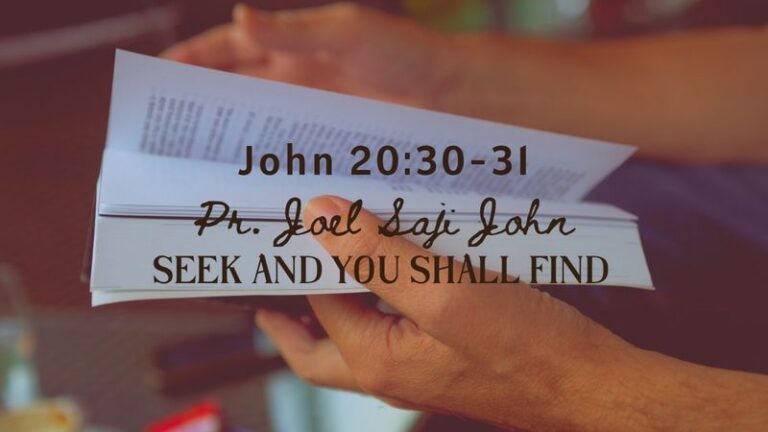 John 20:30-31
Pr. Joel Saji John
SEEK AND YOU SHALL FIND